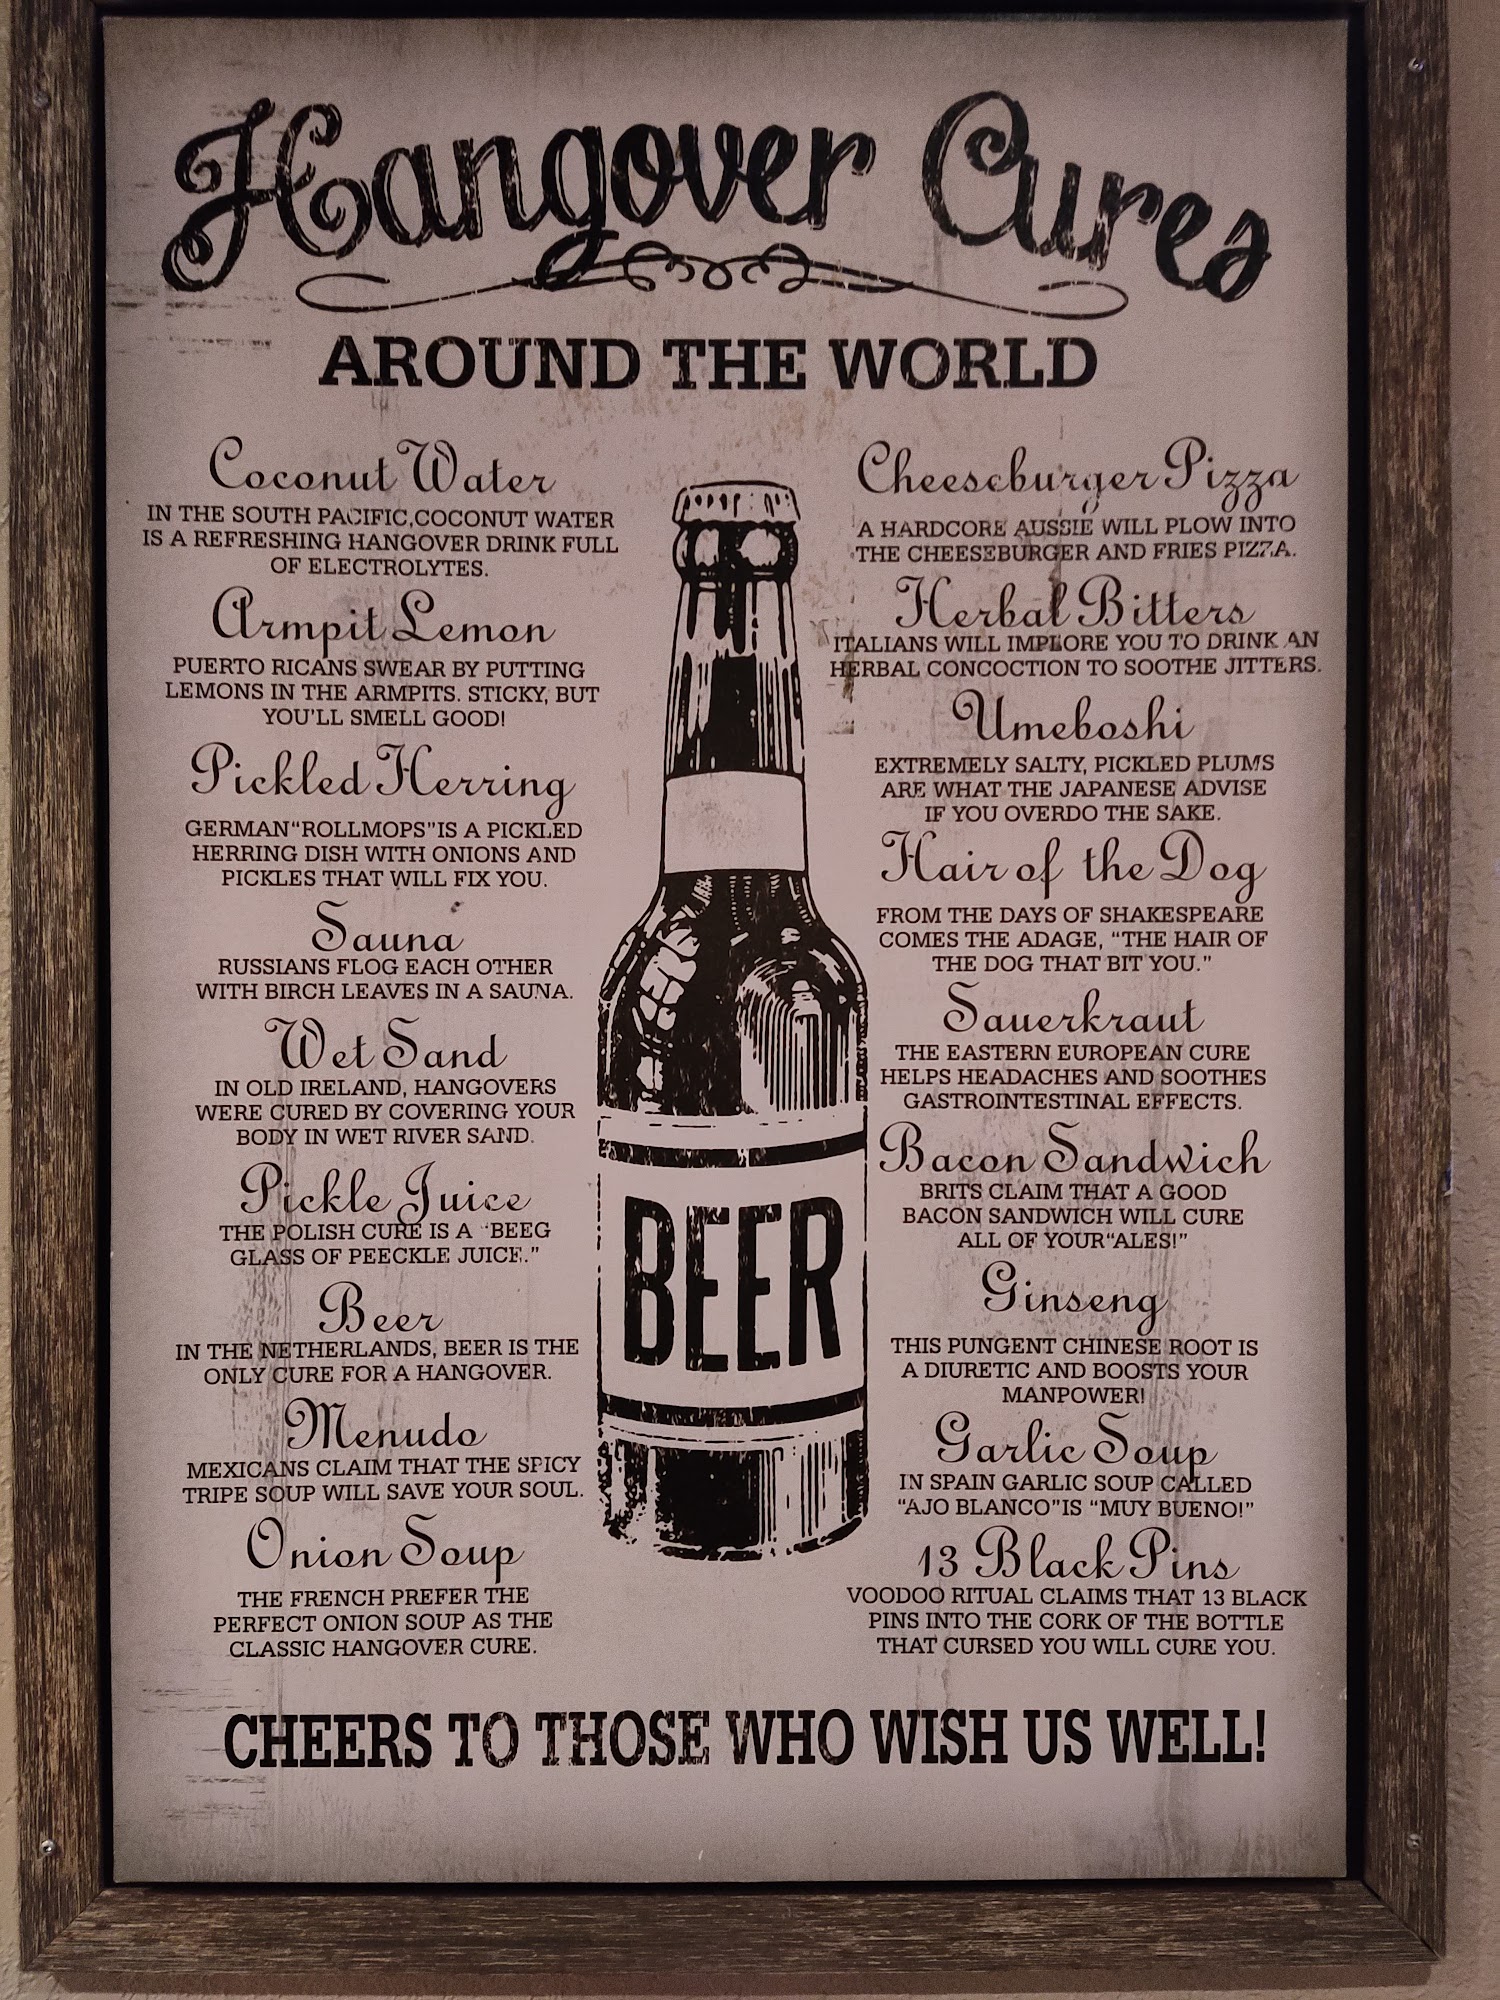 Hangover Cures
AROUND THE WORLD
Coconut Water
IN THE SOUTH PACIFIC,COCONUT WATER
IS A REFRESHING HANGOVER DRINK FULL
OF ELECTROLYTES.
Armpit Lemon
PUERTO RICANS SWEAR BY PUTTING
LEMONS IN THE ARMPITS. STICKY, BUT
YOU'LL SMELL GOOD!
Pickled Herring
GERMAN“ROLLMOPS”IS A PICKLED
HERRING DISH WITH ONIONS AND
PICKLES THAT WILL FIX YOU.
Sauna
RUSSIANS FLOG EACH OTHER
WITH BIRCH LEAVES IN A SAUNA.
Wet Sand
IN OLD IRELAND, HANGOVERS
WERE CURED BY COVERING YOUR
BODY IN WET RIVER SAND.
Pickle Juice
THE POLISH CURE IS A “BEEG
GLASS OF PEECKLE JUICE.”
Beer
IN THE NETHERLANDS, BEER IS THE
ONLY CURE FOR A HANGOVER.
Menudo
MEXICANS CLAIM THAT THE SPICY
TRIPE SOUP WILL SAVE YOUR SOUL.
Onion Soup
THE FRENCH PREFER THE
PERFECT ONION SOUP AS THE
CLASSIC HANGOVER CURE.
BEER
Cheeseburger Pizza
A HARDCORE AUSSIE WILL PLOW INTO
THE CHEESEBURGER AND FRIES PIZZA.
Herbal Bitters
ITALIANS WILL IMPLORE YOU TO DRINK AN
HERBAL CONCOCTION TO SOOTHE JITTERS.
Umeboshi
EXTREMELY SALTY, PICKLED PLUMS
ARE WHAT THE JAPANESE ADVISE
IF YOU OVERDO THE SAKE.
Hair of the Dog
FROM THE DAYS OF SHAKESPEARE
COMES THE ADAGE, “THE HAIR OF
THE DOG THAT BIT YOU.”
Sauerkraut
THE EASTERN EUROPEAN CURE
HELPS HEADACHES AND SOOTHES
GASTROINTESTINAL EFFECTS.
Bacon Sandwich
BRITS CLAIM THAT A GOOD
BACON SANDWICH WILL CURE
ALL OF YOUR“ALES!”
Ginseng
THIS PUNGENT CHINESE ROOT IS
A DIURETIC AND BOOSTS YOUR
MANPOWER!
Garlic Soup
IN SPAIN GARLIC SOUP CALLED
“AJO BLANCO”IS “MUY BUENO!”
13 Black Pins
VOODOO RITUAL CLAIMS THAT 13 BLACK
PINS INTO THE CORK OF THE BOTTLE
THAT CURSED YOU WILL CURE YOU.
CHEERS TO THOSE WHO WISH US WELL!